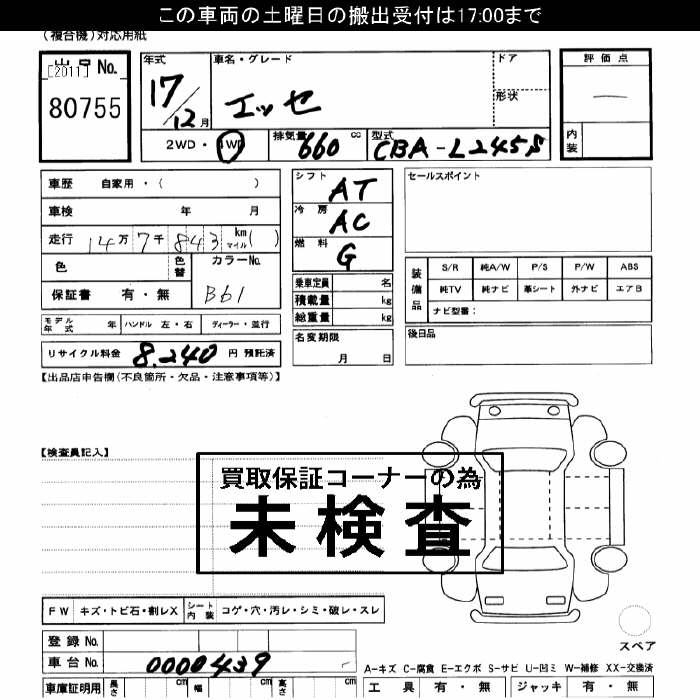 この車両の土曜日の搬出受付は17:00まで
(複合機)対応用紙
出品No.
[2011]
80755
年式
17/12月
車名・グレード
エッセ
ドア
形状
評価点
—
内装
2WD・4WD
排気量 660 cc
型式 CBA-L245S
車歴 自家用・( )
車検 年 月
走行 14万7千843 km マイル( )
色 色替 カラーNo.
保証書 有・無 B61
モデル年式 年 ハンドル 左・右 ディーラー・並行
リサイクル料金 8,240 円 預託済
シフト AT
冷房 AC
燃料 G
乗車定員 名
積載量 kg
総重量 kg
名変期限
月 日
セールスポイント
装備品
S/R 純A/W P/S P/W ABS
純TV 純ナビ 革シート 外ナビ エアB
ナビ型番:
後日品
【出品店申告欄(不良箇所・欠品・注意事項等)】
【検査員記入】
買取保証コーナーの為
未検査
FW キズ・トビ石・割レX シート内装 コゲ・穴・汚レ・シミ・破レ・スレ
登録No.
車台No. 0000439
車庫証明用 長さ cm 幅 cm 高さ cm
スペア
A-キズ C-腐食 E-エクボ S-サビ U-凹ミ W-補修 XX-交換済
工具 有・無 ジャッキ 有・無